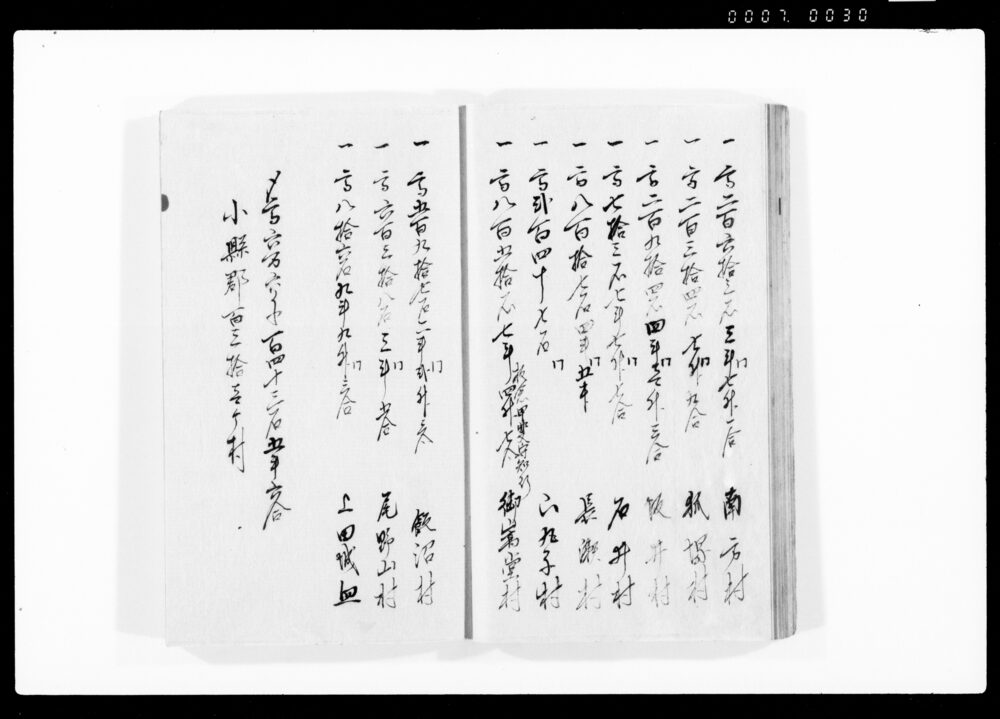 0007. 0030
一 高二百六拾三石三斗七升一合 南方村
一 高二百三拾四石七升九合 狐塚村
一 高二百九拾四石四斗壱升三合 飯井村
一 高七拾三石七斗七升七合 石井村
一 高八百拾七石四斗五升 長瀬村
一 高弐百四十七石
一 高八百五拾石七斗四升七合 御嶽堂村
一 高五百九拾七石二斗弐升三合 飯沼村
一 高六百三拾八石三斗 尾野山村
一 高八拾六石九斗九升三合 上田城
〆高六万六千百四十三石五斗六合
小縣郡百三拾壱ケ村